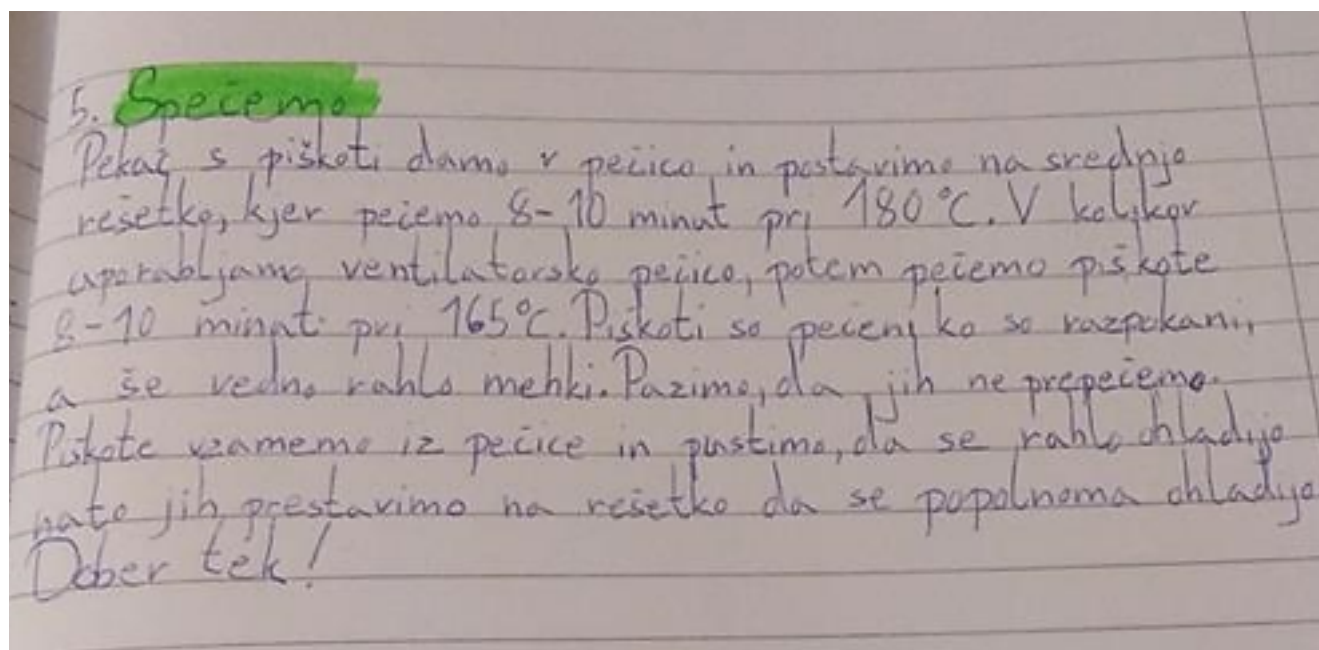 5. Spečemo
Pekač s piškoti damo v pečico in postavimo na srednjo
rešetko, kjer pečemo 8-10 minut pri 180°C. V kolikor
uporabljamo ventilatorsko pečico, potem pečemo piškote
8-10 minut pri 165°C. Piškoti so pečeni ko so razpokani,
a še vedno rahlo mehki. Pazimo, da jih ne prepečemo.
Piškote vzamemo iz pečice in pustimo, da se rahlo ohladijo
nato jih prestavimo na rešetko da se popolnoma ohladijo
Dober tek!